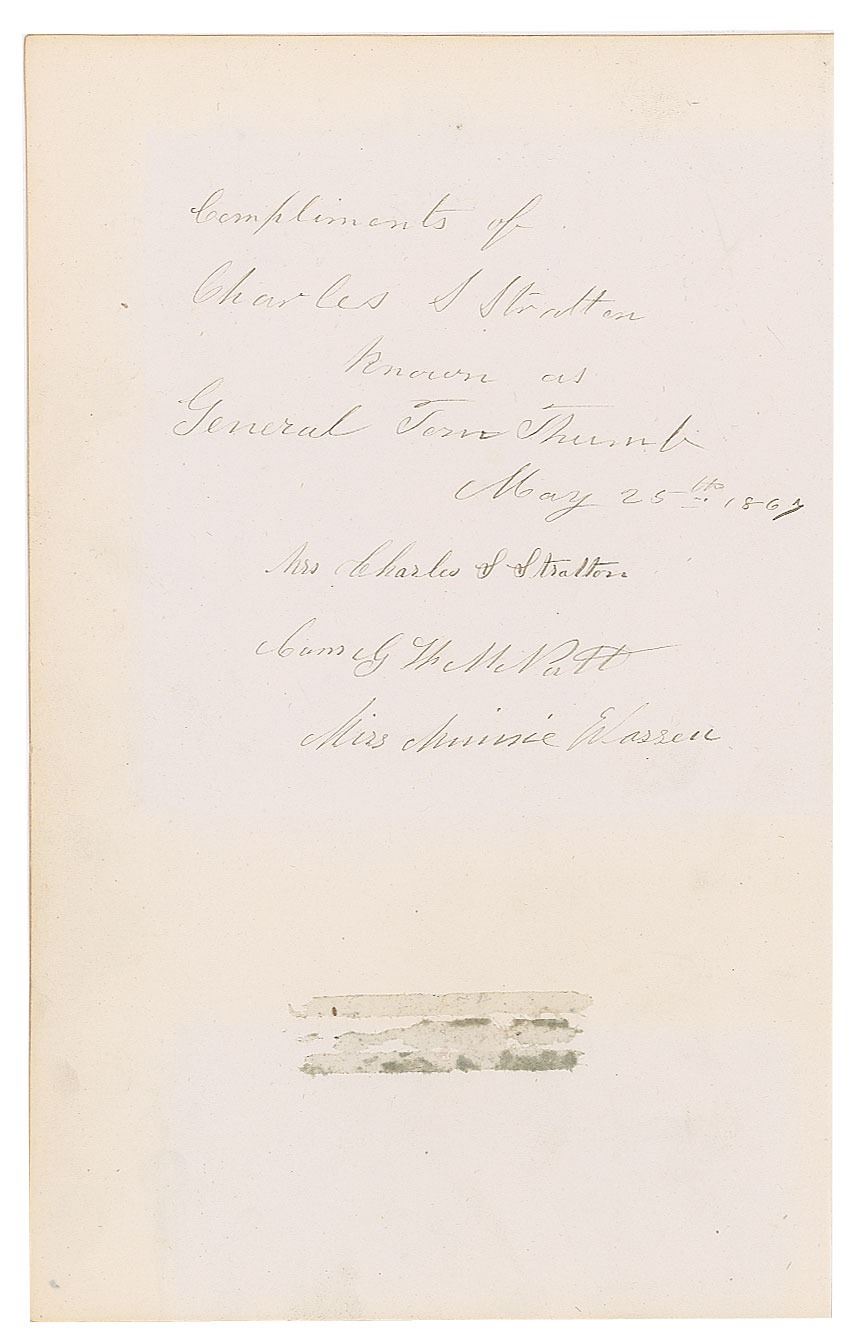 Compliments of
Charles S Stratton
known as
General Tom Thumb
May 25th 1867
Mrs Charles S Stratton
Com G W M Nutt
Miss Minnie Warren